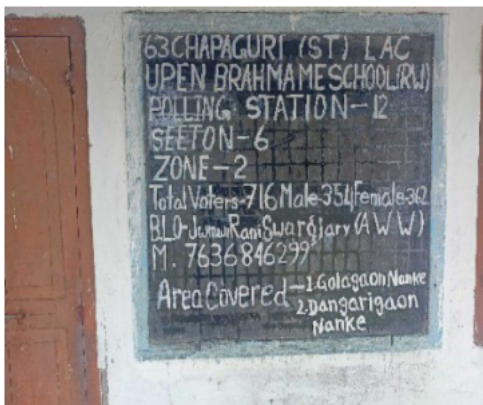 63 CHAPAGURI (ST) LAC
UPEN BRAHMA ME SCHOOL (RW)
POLLING STATION-12
SEETON-6
ZONE-2
Total Voters-716 Male-354 Female-362
BLO-Jamun Rani Swargiary (AWW)
M. 7636846299
Area Covered-1.Golagaon Nanke
2.Dangarigaon
Nanke